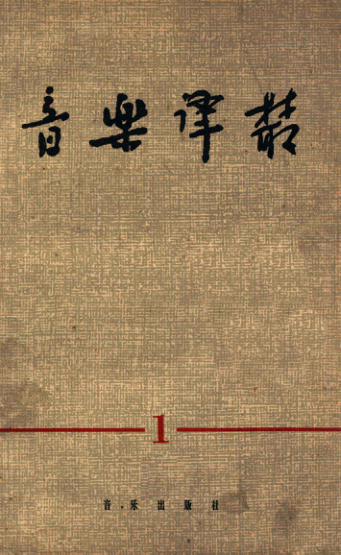 音樂译叢
1
音乐出版社